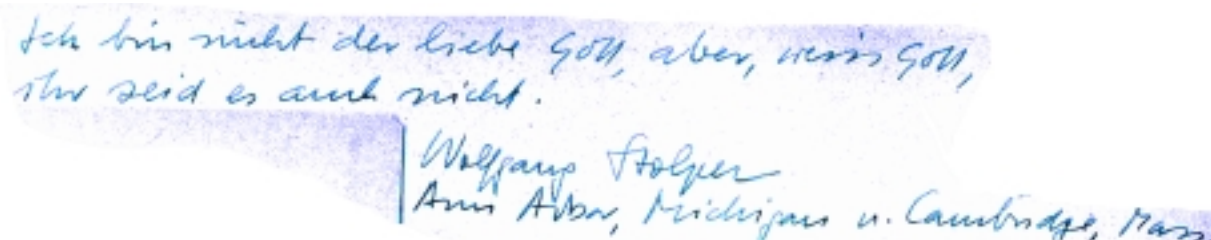 Ich bin nicht der liebe Gott, aber, weiss Gott,
ihr seid es auch nicht.
Wolfgang Stolper
Ann Arbor, Michigan u. Cambridge, Mass